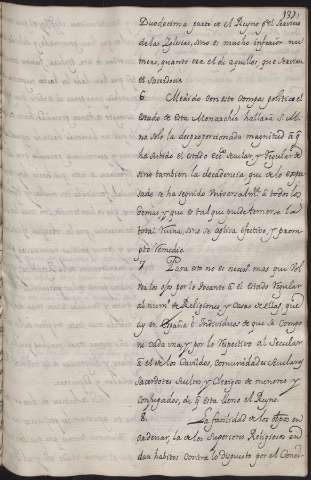 132
Duodecima parte de el Reyno p.ª el Servicio
de las Yglesias, sino es mucho inferior nu-
mero, quanto era el de aquellos que servian
el Sacerdocio.
6. Medido con este compas politico el
estado de esta Monarchia hallarà
no solo la desproporcionada magnitud à q.
ha subido el estado ecc.º secular, y Regular
sino tambien la decadencia, que de lo expre-
sado se ha seguido universalm.te à todos los
demas, y que es tal que puede temerse la
total ruina, sino se aplica efectivo, y promp-
to remedio.
7. Para esto no es necess.º mas que
los ojos por lo tocante à el estado Regular
al num.º de Religiones y Casas de ellas, que
ay en España è Individuos de que se compo-
ne cada una, y por lo respectivo al Secular
à el de los Cavildos, comunidades Seculares
Sacerdotes sueltos y Clerigos de menores y
conjugados, de q. està lleno el Reyno.
8. La facilidad de los en
ordenar, la de los Superiores Religiosos en
dar habitos contra lo dispuesto por el